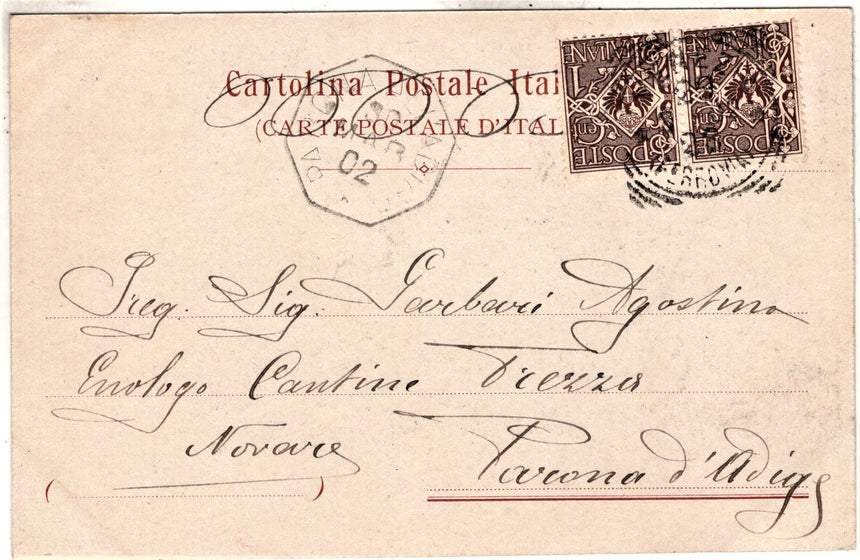 Cartolina Postale Ital
(CARTE POSTALE D'ITAL
POSTE ITALIANE
1
POSTE ITALIANE
1
MAR
02
FERROVIA
Preg. Sig. Garbari Agostino
Enologo Cantine Trezza
Novare
Parona d'Adige
( )